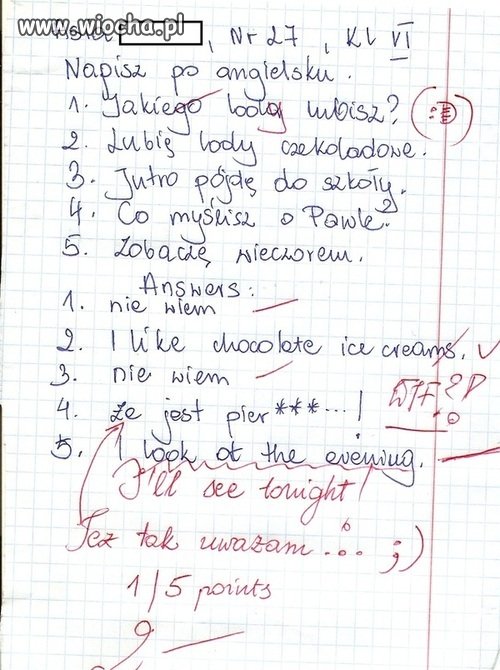 www.wiocha.pl
, Nr 27 , Kl VI
Napisz po angielsku.
1. Jakiego loda lubisz?
2. Lubię lody czekoladowe.
3. Jutro pójdę do szkoły.
4. Co myślisz o Pawle?
5. Zobaczę wieczorem.
Answers:
1. nie wiem
2. I like chocolate ice creams.
3. nie wiem
WTF ?
4. że jest pier ***...!
5. I look at the evening.
I'll see tonight!
Też tak uważam ... ;)
1/5 points